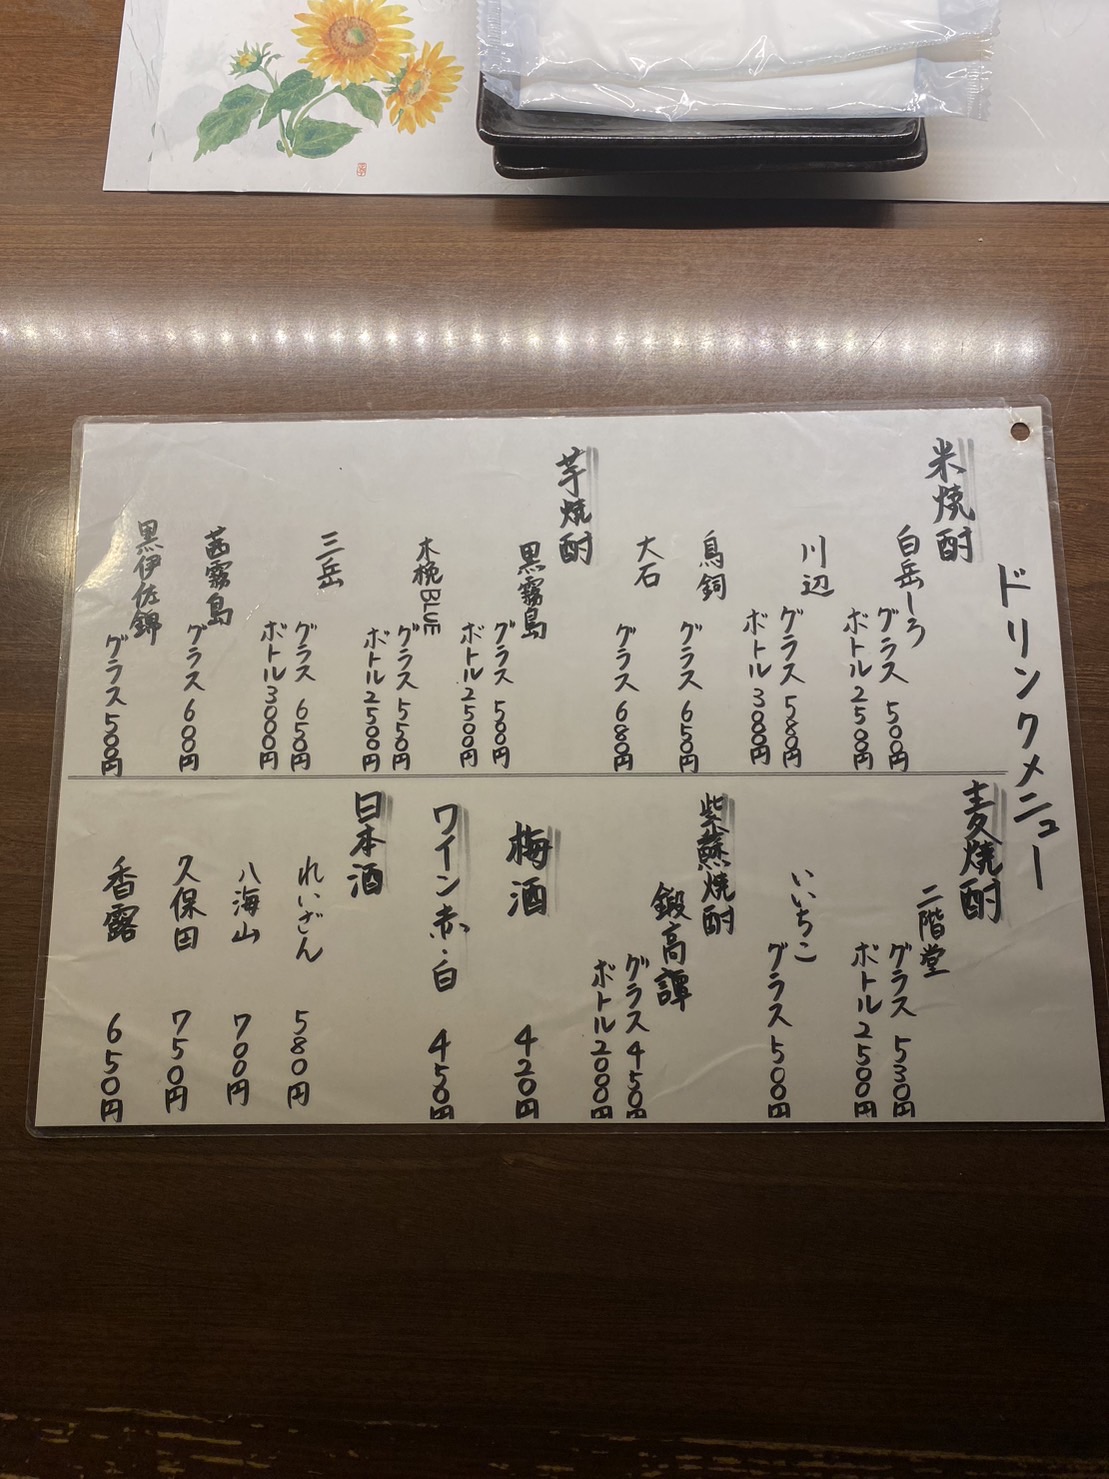 ドリンクメニュー
米焼酎
白岳しろ
グラス 500円
ボトル 2500円
川辺
グラス 580円
ボトル 3000円
鳥飼
グラス 650円
大石
グラス 680円
芋焼酎
黒霧島
グラス 500円
ボトル 2500円
木挽BLUE
グラス 550円
ボトル 2500円
三岳
グラス 650円
ボトル 3000円
茜霧島
グラス 600円
黒伊佐錦
グラス 500円
麦焼酎
二階堂
グラス 530円
ボトル 2500円
いいちこ
グラス 500円
紫蘇焼酎
鍛高譚
グラス 450円
ボトル 2000円
梅酒 420円
ワイン赤・白 450円
日本酒
れいざん 580円
八海山 700円
久保田 750円
香露 650円